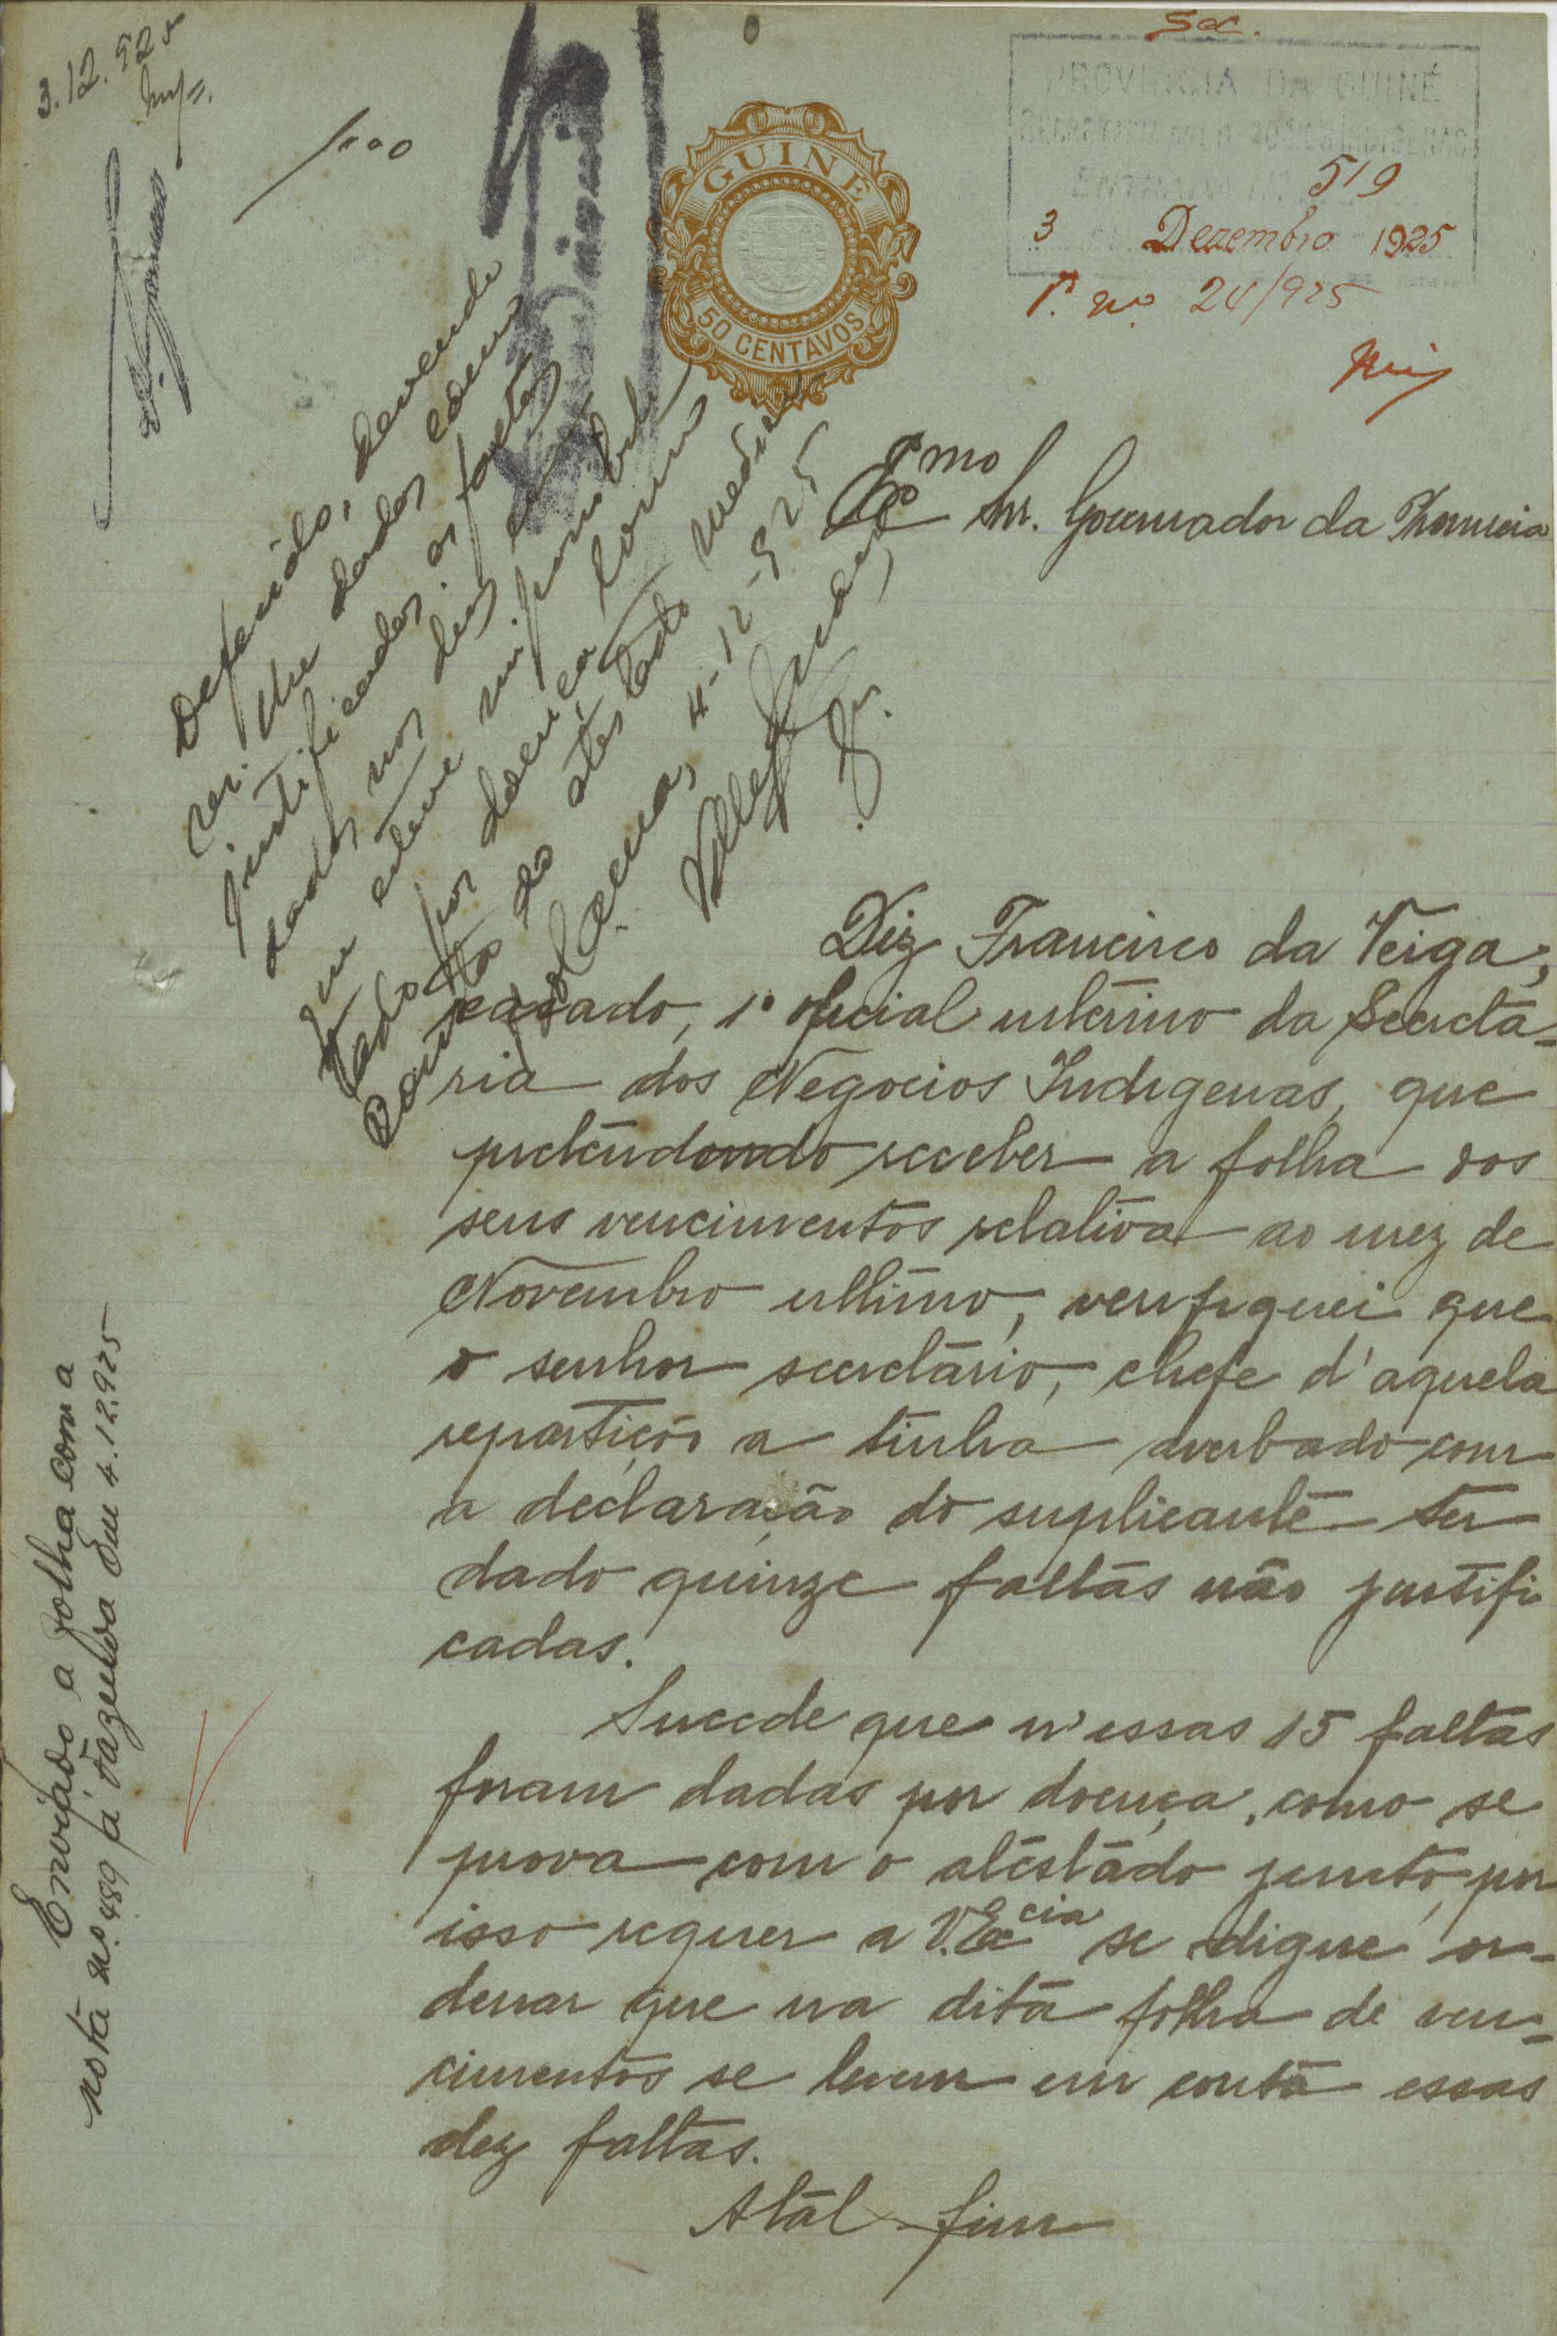 3.12.925
1$00
Sec.
PROVINCIA DA GUINÉ
ENTRADA N.º 519
3 Dezembro 1925
P. nº 24/925
GUINÉ
50 CENTAVOS
Exmo Snr. Governador da Provincia
Deferido, devendo
ser-lhe dados como
justificadas as faltas
dadas nos dez
que esteve
por doença como
consta do atestado medico
Bolama, 4-12-925
Diz Francisco da Veiga,
casado, 1º oficial interino da Secretá-
ria dos Negocios Indigenas, que
pretendendo receber a folha dos
seus vencimentos relativa ao mez de
Novembro ultimo, verifiquei que
o senhor secretário, chefe d'aquela
repartição a tinha averbado com
a declaração do suplicante ter
dado quinze faltas não justifi
cadas.
Sucede que n'essas 15 faltas
foram dadas por doença, como se
prova com o atestado junto, por
isso requer a V. Excia se digne or-
denar que na dita folha de ven-
cimentos se levem em conta essas
dez faltas.
Atál fim
Enviado a folha com a
nota nº 489 á Fazenda Em 4.12.925